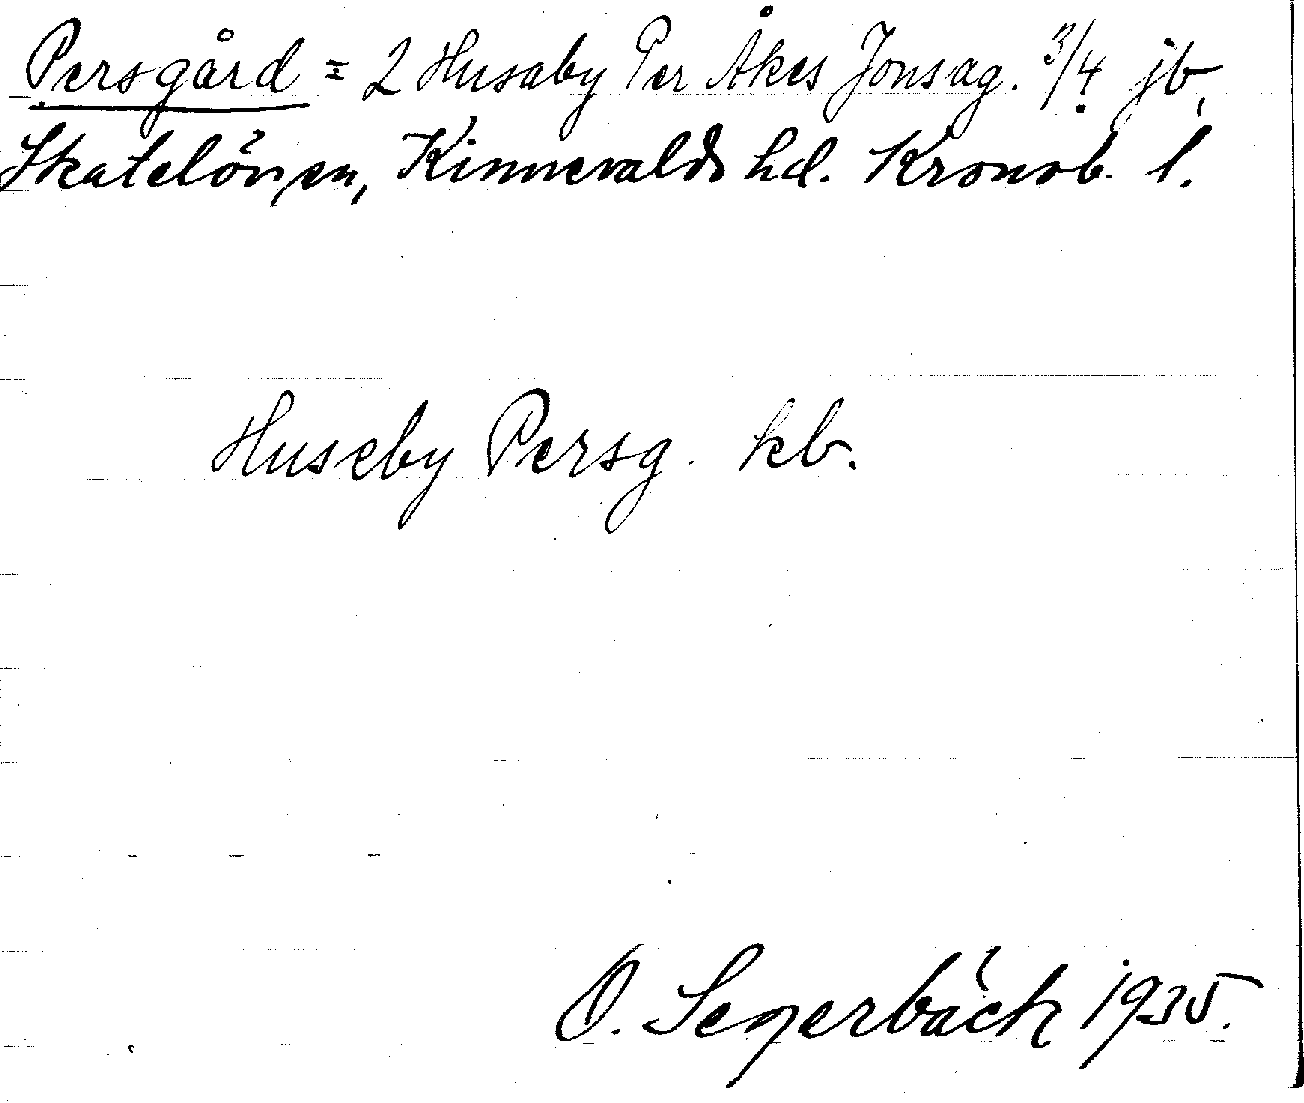 Persgård = 2 Husaby Per Åkes Jonsag. 3/4 jb,
Skatelövs sn, Kinnevalds hd. Kronob. l.
Huseby Persg. kb.
O. Segerbäck 1935.